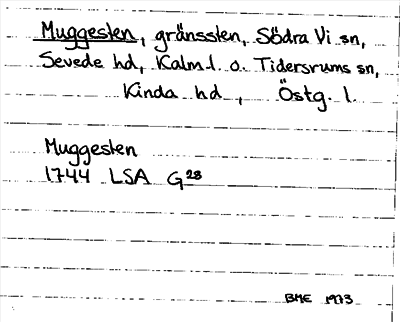 Muggesten, gränssten, Södra Vi sn,
Sevede hd, Kalm. l. o. Tidersrums sn,
Kinda hd, Östg. l.
Muggesten
1744 LSA G 28
BME 1973